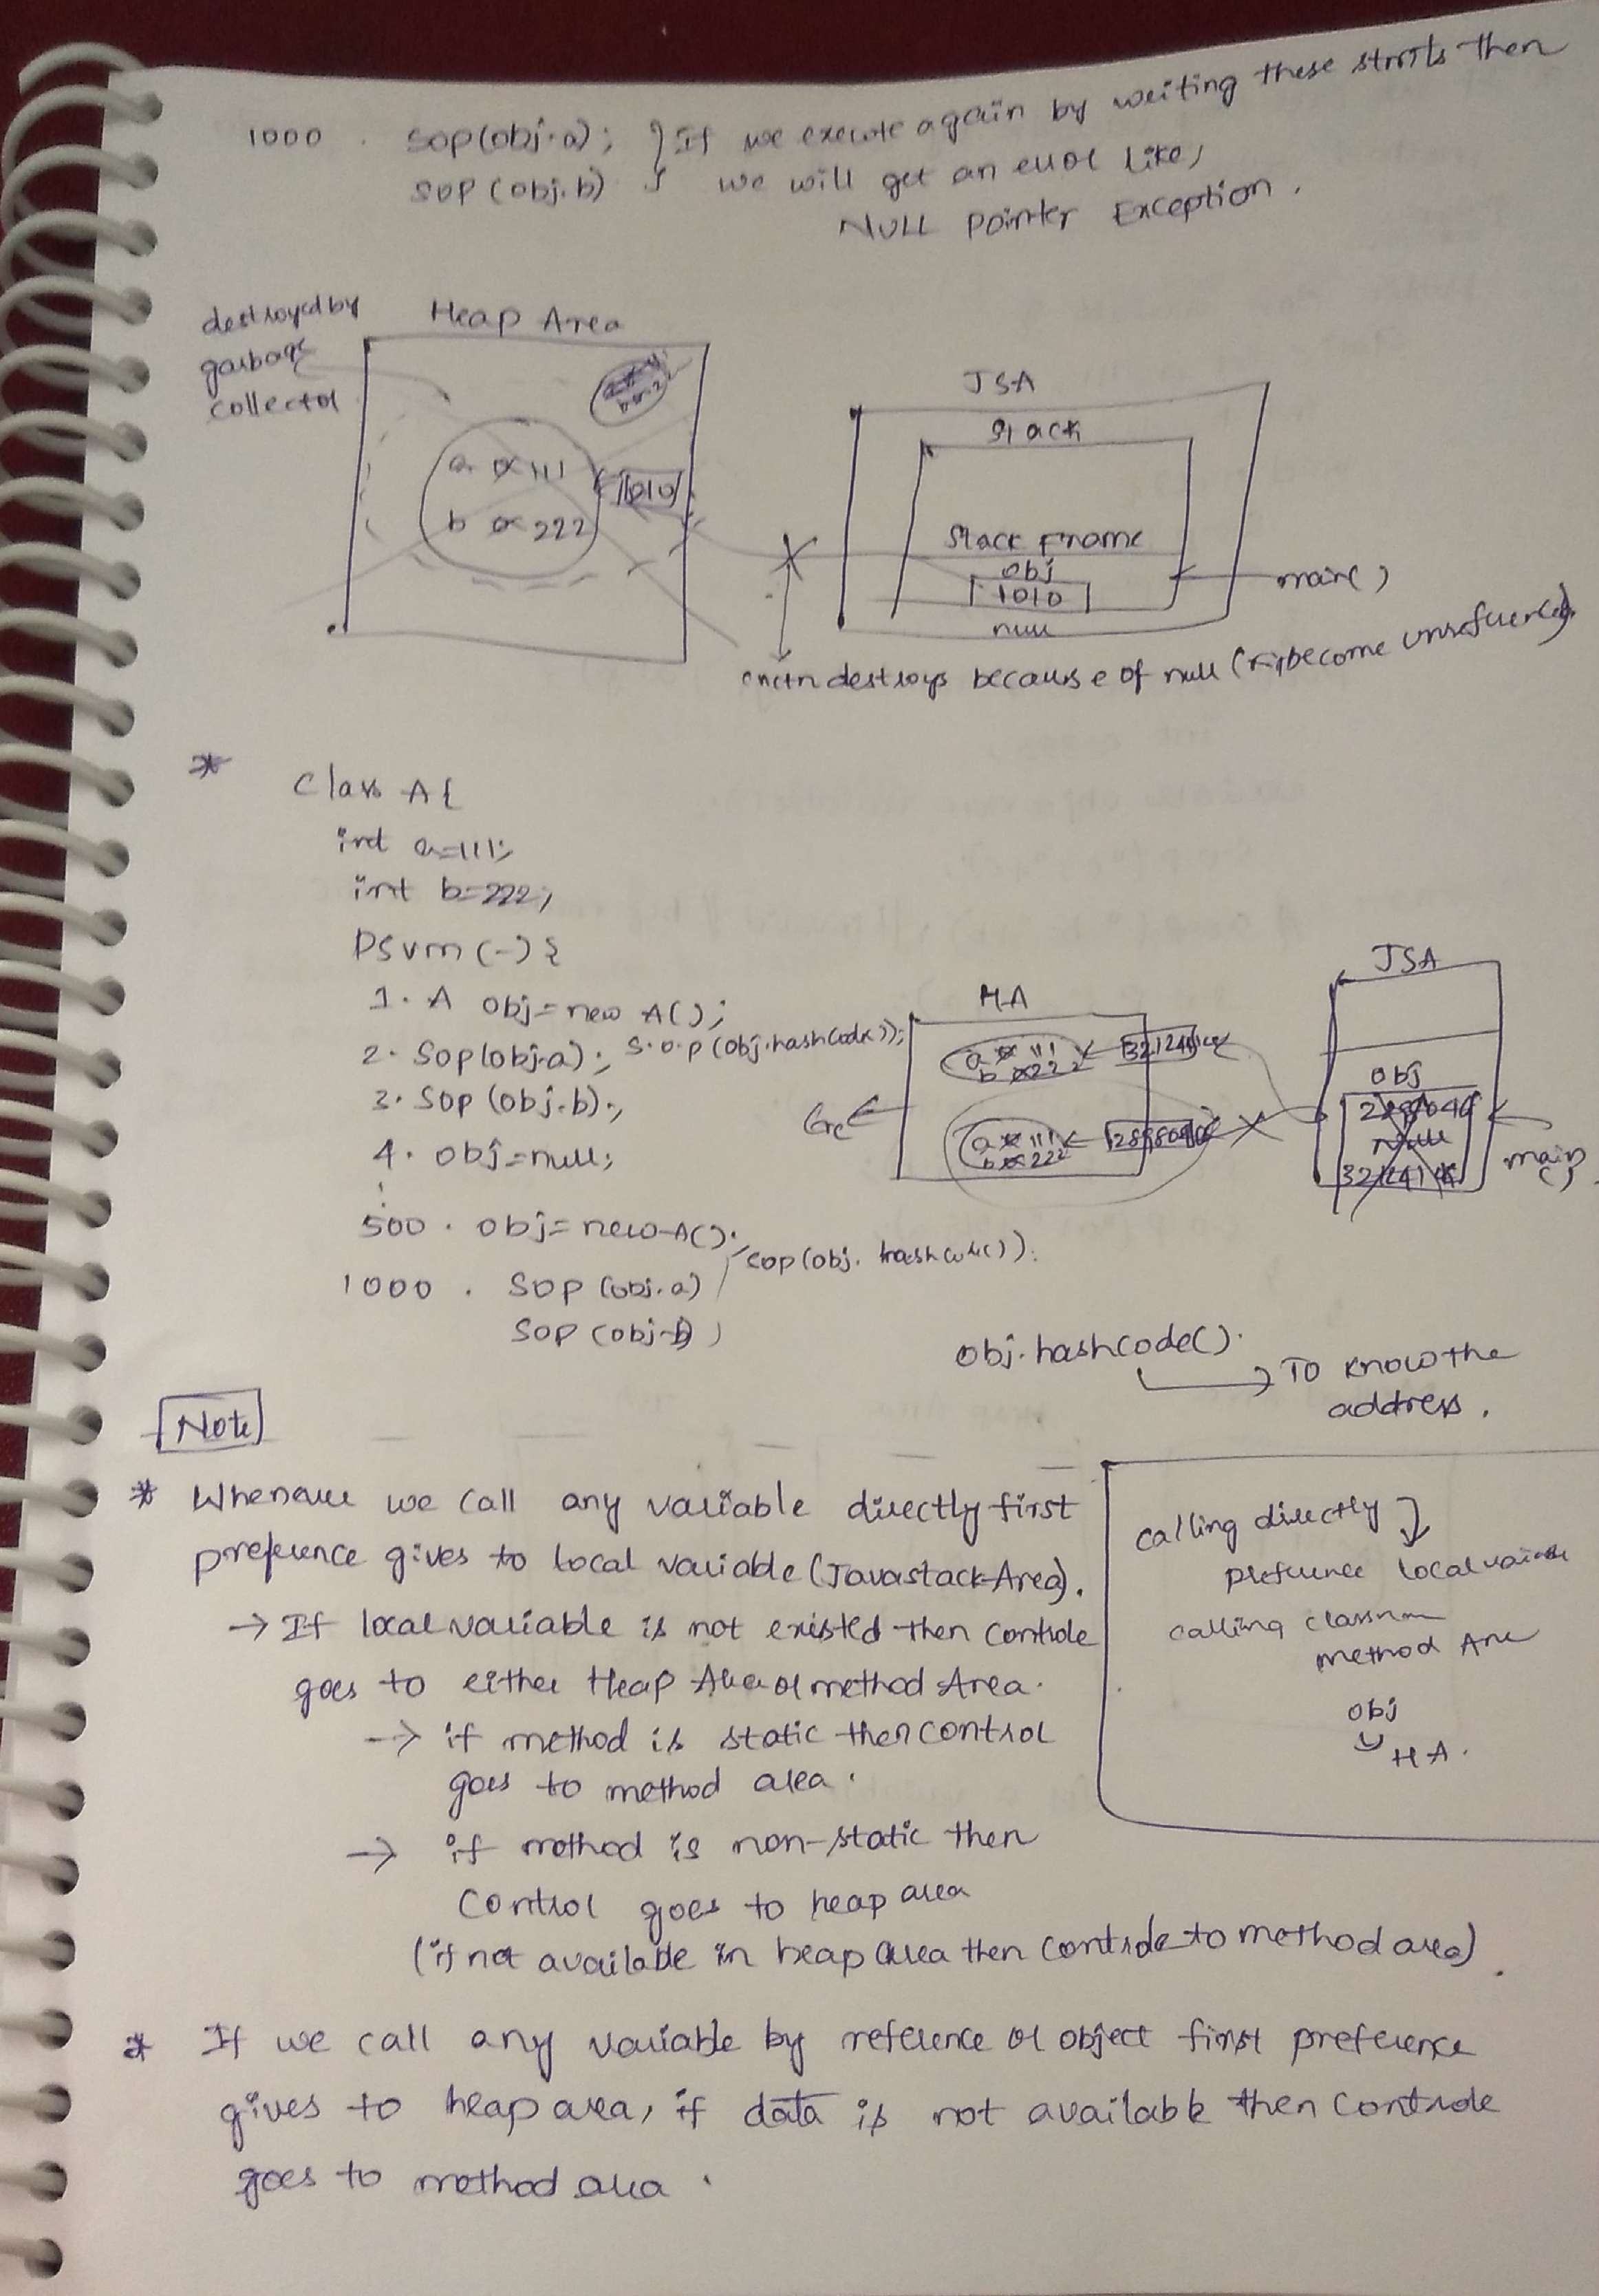 1000 . sop(obj.a); } If we execute again by writing these stmts then
sop(obj.b) } we will get an error like,
NULL pointer Exception.
destroyed by
garbage
collector
Heap Area
a 0 111
b 0 222
1010
JSA
stack
stack Frame
obj
1010
null
main()
destroys because of null
* class A{
int a=111;
int b=222;
psvm(-){
1. A obj=new A();
2. Sop(obj.a); S.o.p(obj.hashCode());
3. Sop(obj.b);
4. obj=null;
500 . obj=new A();
sop(obj.hashcode());
1000 . Sop(obj.a)
Sop(obj.b)
HA
a 0 111
b 0 222
a 0 111
b 0 222
GC
JSA
obj
Null
main
()
obj.hashcode().
→ To know the
address.
Note
* Whenever we call any variable directly first
preference gives to local variable (Javastack Area).
→ If local variable is not existed then controle
goes to either Heap Area or method Area.
→ if method is static then control
goes to method area.
→ if method is non-static then
control goes to heap area
(if not available in heap area then controle to method area).
calling directly
preference local variable
calling
method Are
obj
HA.
* If we call any variable by reference or object first preference
gives to heap area, if data is not available then controle
goes to method area.